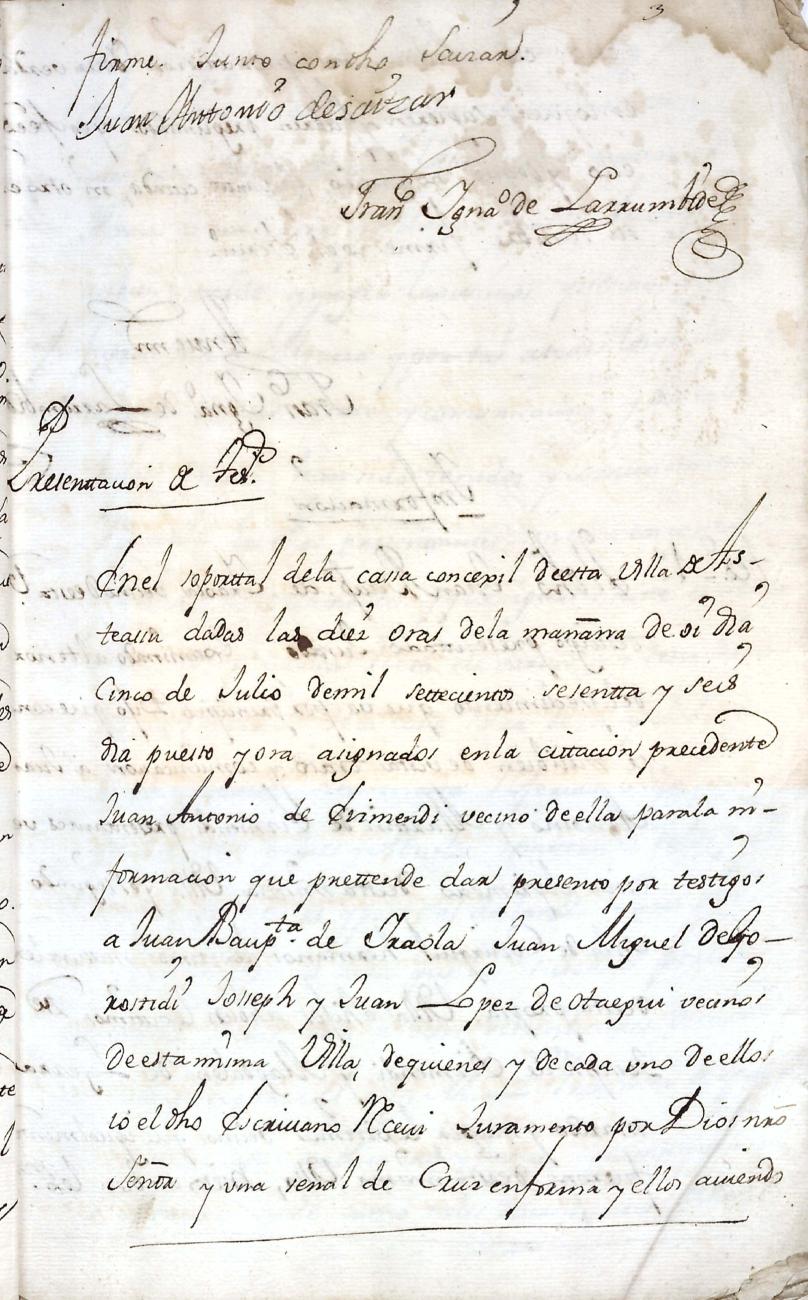 3
firme Junto con dho Saizar.
Juan Antonio desaizar
Franco Ignao de Larrumbide
Presenttacion de Tesp.
Enel soporttal dela cassa concexil deesta Villa de As-
teassu dadas las diez oras dela manãna de oi dia
Cinco de Julio demil settecientos sesentta y seis
dia puesto y ora asignados enla cittacion precedente
Juan Antonio de Erimendi vecino deella parala in-
formacion que prettende dar presento por testigos
a Juan Baupta. de Iraola Juan Miguel deGo-
rostidi Josseph y Juan Lopez de Otaegui vecinos
deesta misma Villa, dequienes y decada uno deellos
io el dho Escrivano Rcevi Juramento por Dios nrõ
Señor y una senal de Cruz enforma y ellos aviendo